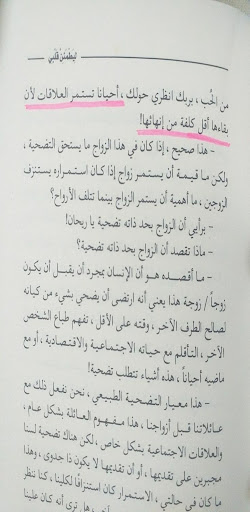 ليطمئن قلبي
من الحُب ، بربك انظري حولك ، أحيانا تستمر العلاقات لأن
بقاءها أقل كلفة من إنهائها!
- هذا صحيح ، إذا كان في هذا الزواج ما يستحق التضحية ،
ولكن ما قيمة أن يستمر زواج إذا كان استمراره يستنزف
الزوجين ، ما أهمية أن يستمر الزواج بينما تتلف الأرواح؟
- برأيي أن الزواج بحد ذاته تضحية يا ريحان!
- ماذا تقصد أن الزواج بحد ذاته تضحية؟
- ما أقصده هو أن الإنسان بمجرد أن يقبل أن يكون
زوجاً / زوجة هذا يعني أنه ارتضى أن يضحي بشيء من كيانه
لصالح الطرف الآخر ، وقته على الأقل ، تفهم طباع الشخص
الآخر ، التأقلم مع حياته الاجتماعية والاقتصادية ، أو مع
ماضيه أحياناً ، هذه أشياء تتطلب تضحية!
- هذا معيار التضحية الطبيعي ، نحن نفعل ذلك مع
عائلاتنا قبل أزواجنا ، هذا مفهوم العائلة بشكل عام ،
والعلاقات الاجتماعية بشكل خاص ، لكن هناك تضحية لسنا
مجبرين على تقديمها ، أو أن تقديمها لا يكون ذا جدوى ، وهذا
ما كان في حالتي ، الاستمرار كان استنزافا لكلينا ، كنا ننظر
هل ترى أنه كان علينا